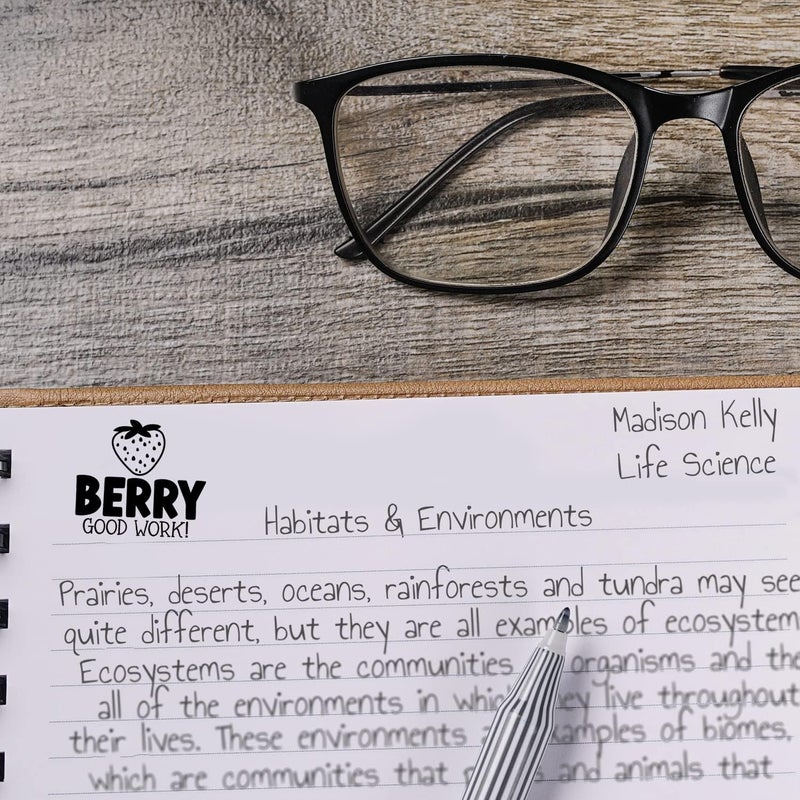 Madison Kelly
Life Science
BERRY
GOOD WORK!
Habitats & Environments
Prairies, deserts, oceans, rainforests and tundra may see
quite different, but they are all examples of ecosystem
Ecosystems are the communities organisms and the
all of the environments in which they live throughout
their lives. These environments examples of biomes,
which are communities that and animals that